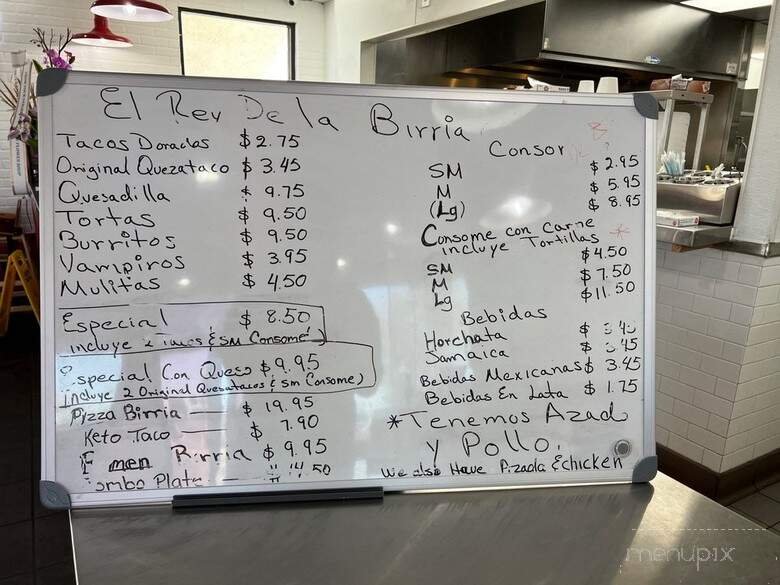 El Rey De la Birria
Tacos Dorados $2.75
Original Quezataco $3.45
Quesadilla $9.75
Tortas $9.50
Burritos $9.50
Vampiros $3.95
Mulitas $4.50
Especial $8.50
incluye 2 Tacos & SM Consome)
special Con Queso $9.95
incluye 2 Original Quesatacos & Sm Consome)
Pizza Birria — $19.95
Keto Taco — $7.90
men Birria $9.95
ombo Plate — 14.50
Consom
SM $2.95
M $5.95
(Lg) $8.95
Consome con Carne *
incluye Tortillas
SM $4.50
M $7.50
Lg $11.50
Bebidas
Horchata $3.45
Jamaica $3.45
Bebidas Mexicanas $3.45
Bebidas En Lata $1.75
*Tenemos Azad
y Pollo.
We also Have Azada & chicken
menupix